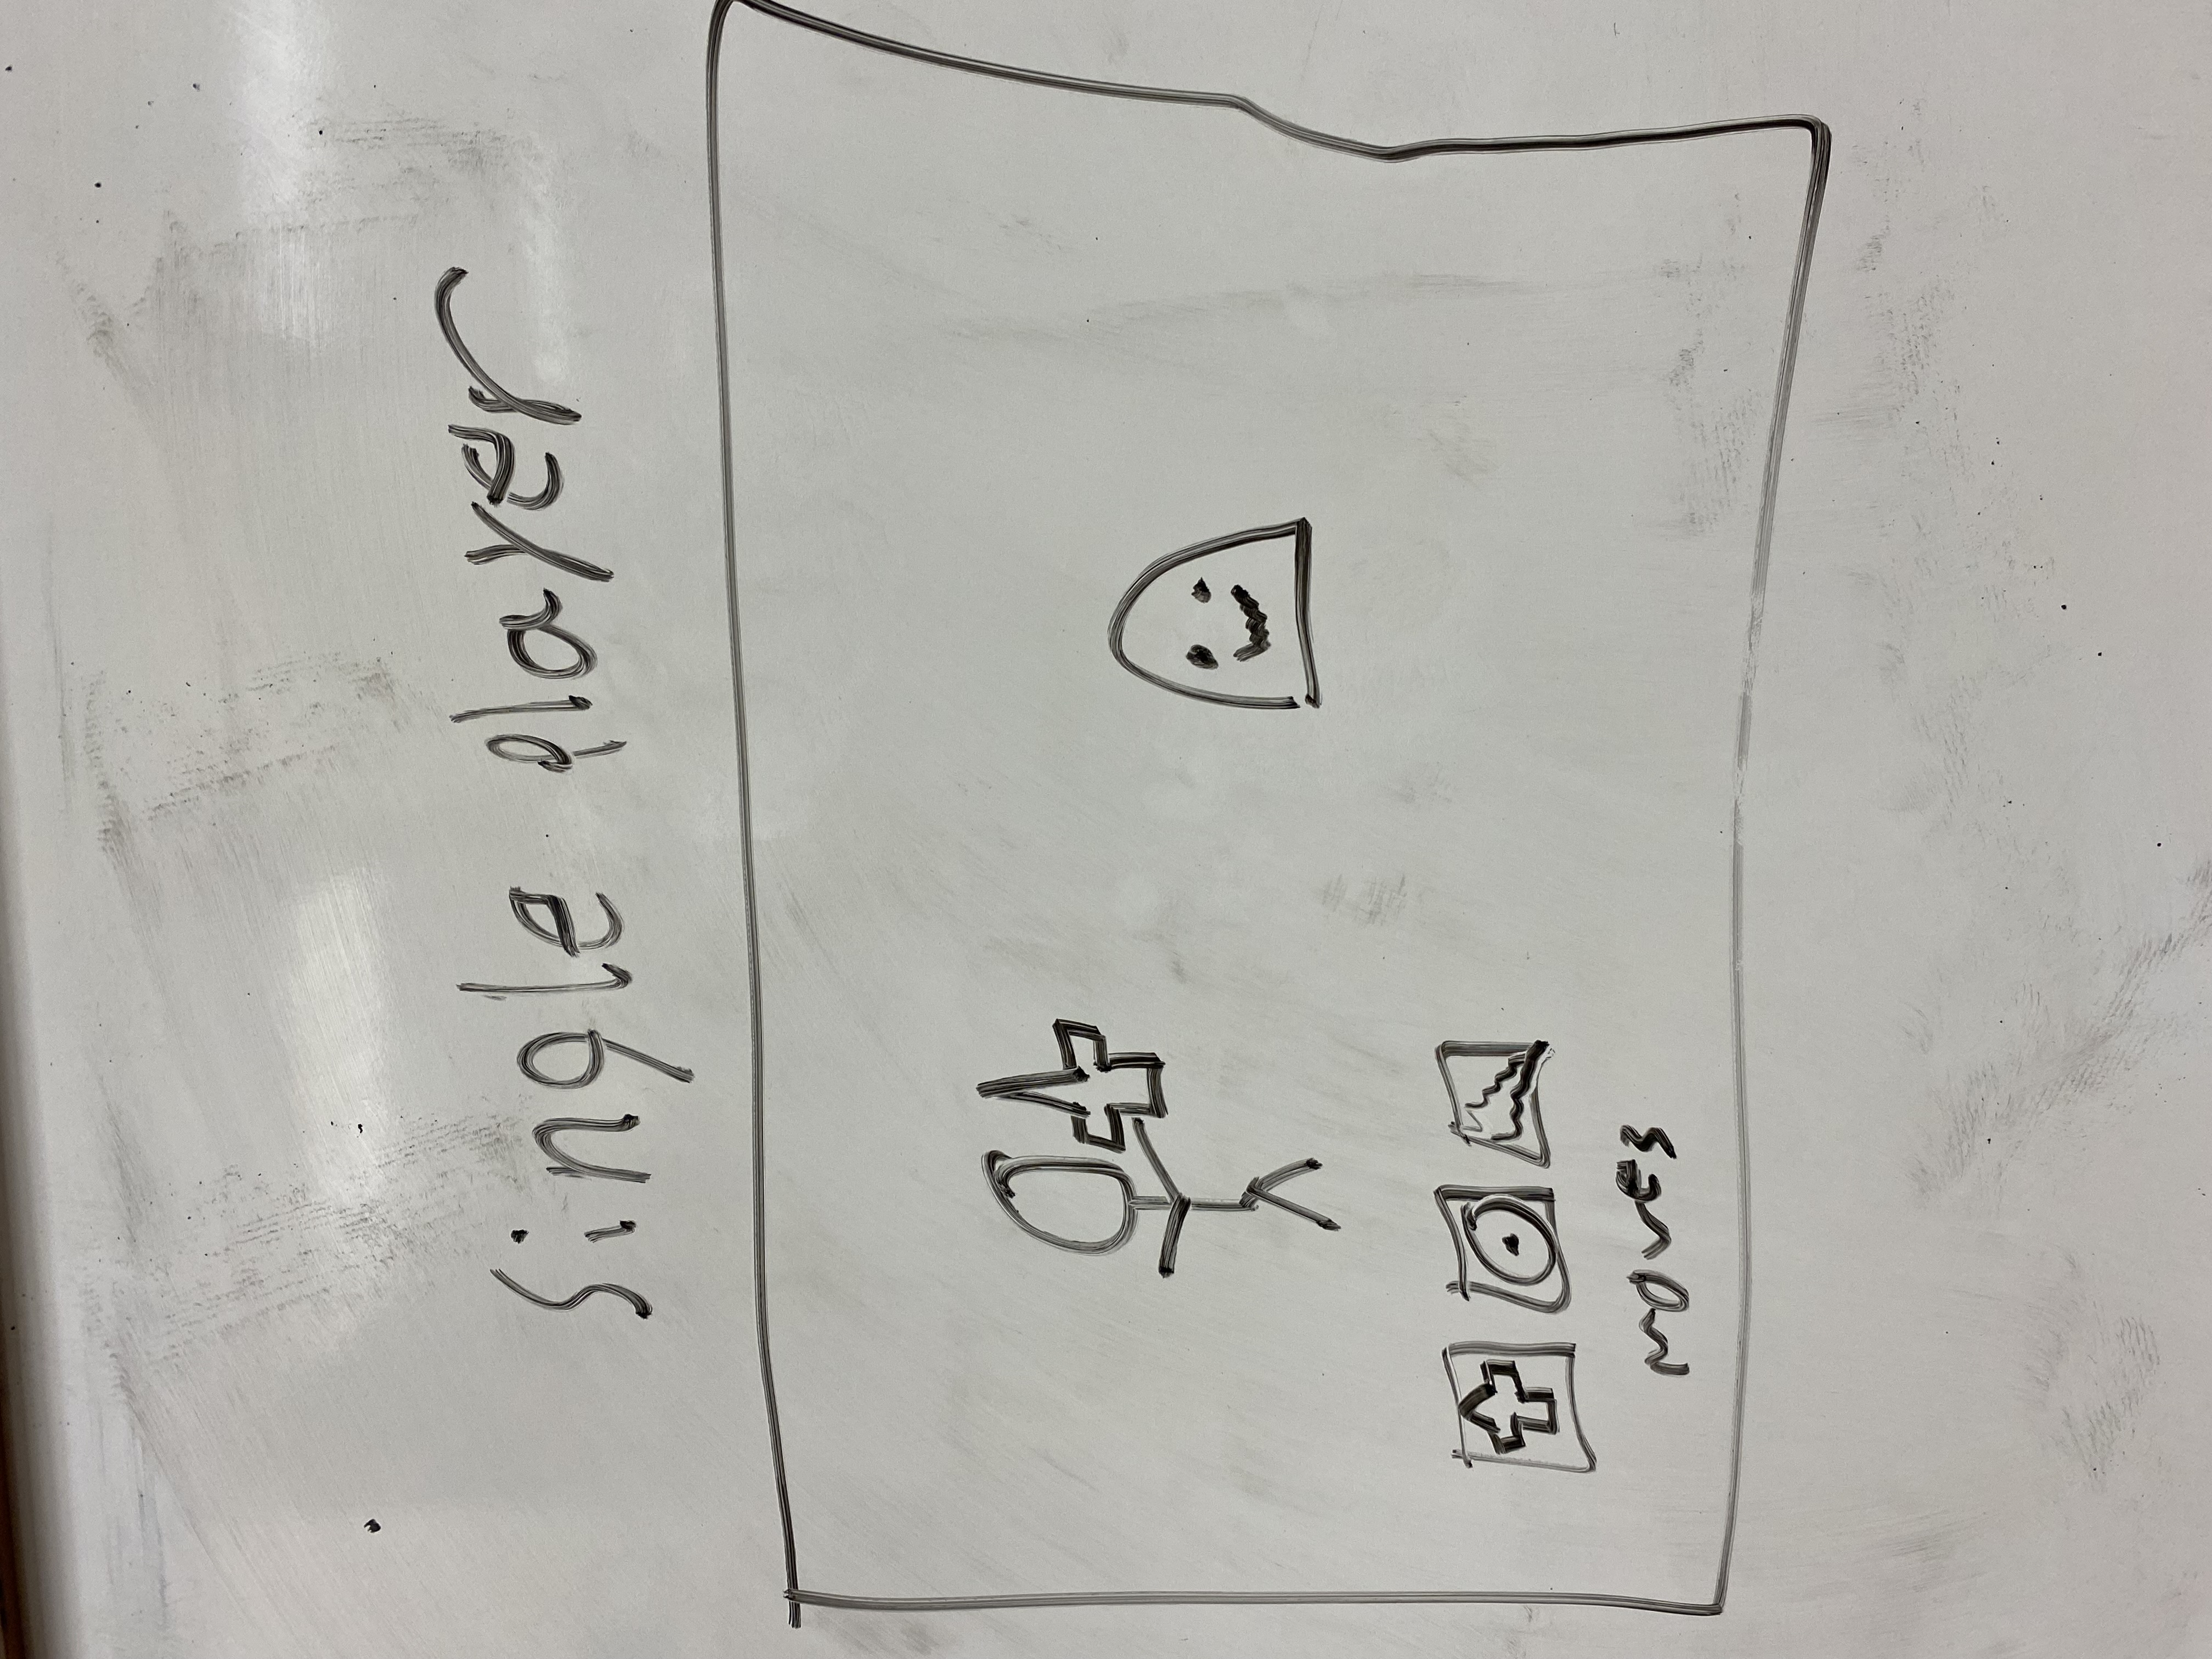 Single player
moves